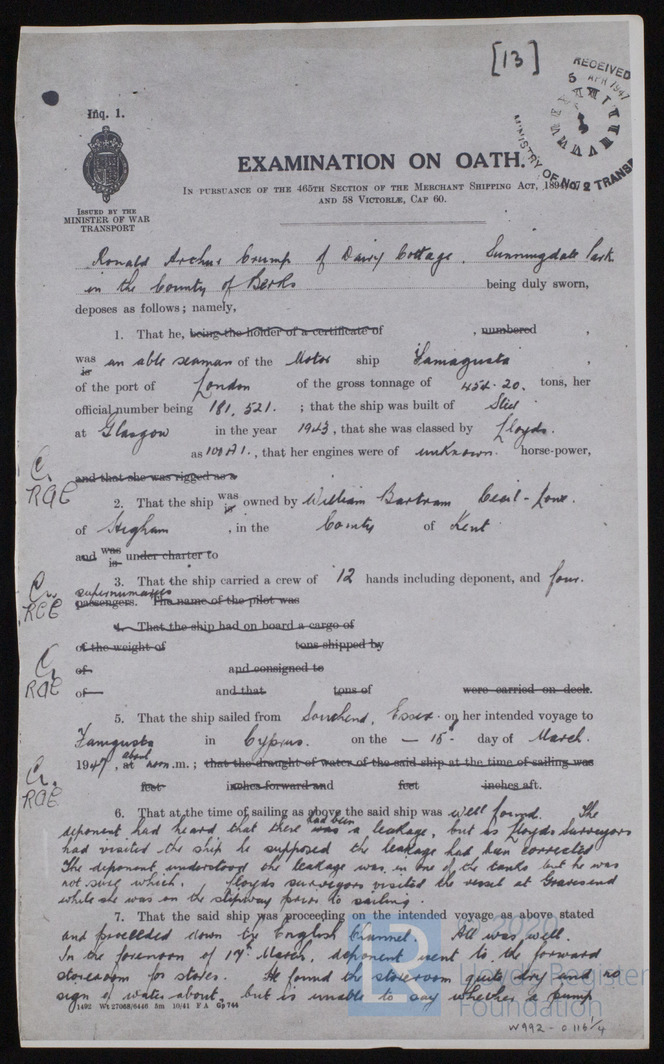 [13]
RECEIVED
5 APR 1947
MINISTRY OF TRANSPORT
Inq. 1.
ISSUED BY THE
MINISTER OF WAR
TRANSPORT
EXAMINATION ON OATH.
IN PURSUANCE OF THE 465TH SECTION OF THE MERCHANT SHIPPING ACT, 1894, 57
AND 58 VICTORIÆ, CAP 60.
Ronald Arthur Crump of Dairy Cottage, Sunningdale Park
in the County of Berks being duly sworn,
deposes as follows; namely,
1. That he, being the holder of a certificate of , numbered ,
was
is an able seaman of the Motor ship Famagusta ,
of the port of London of the gross tonnage of 454.20. tons, her
official number being 181,521. ; that the ship was built of Steel
at Glasgow in the year 1943, that she was classed by Lloyds.
as 100 A1., that her engines were of unknown. horse-power,
and that she was rigged as a
C.
RAC
2. That the ship was
is owned by William Bartram Cecil-
of Higham , in the County of Kent
and was
is under charter to
3. That the ship carried a crew of 12 hands including deponent, and four.
supernumaries
passengers. The name of the pilot was
C.
RAC
4. That the ship had on board a cargo of
of the weight of tons shipped by
of and consigned to
of and that tons of were carried on deck.
C.
RAC
5. That the ship sailed from Southend, Essex. on her intended voyage to
Famagusta in Cyprus. on the – 15th day of March.
1947, at about noon.m.; that the draught of water of the said ship at the time of sailing was
feet inches forward and feet inches aft.
C.
RAC
6. That at the time of sailing as above the said ship was well found. The
deponent had heard that there was had been a leakage, but as Lloyds Surveyors
had visited the ship he supposed the leakage had been corrected
The deponent understood the leakage was in one of the tanks but he was
not sure which. Lloyds surveyors visited the vessel at Gravesend
while she was on the slipway prior to sailing.
7. That the said ship was proceeding on the intended voyage as above stated
and proceeded down the English Channel. All was well.
In the forenoon of 17th March, deponent went to the forward
storeroom for stores. He found the storeroom quite dry and no
sign of water about, but is unable to say whether a pump
1492 Wt 27068/6446 5m 10/41 F A Gp 744
© 2020
LR
Lloyd's Register
Foundation
W992 - 0116 1/4